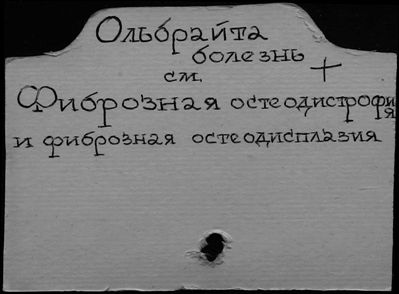 Ольбрайта
болезнь
см. +
Фиброзная остеодистрофия
и фиброзная остеодисплазия